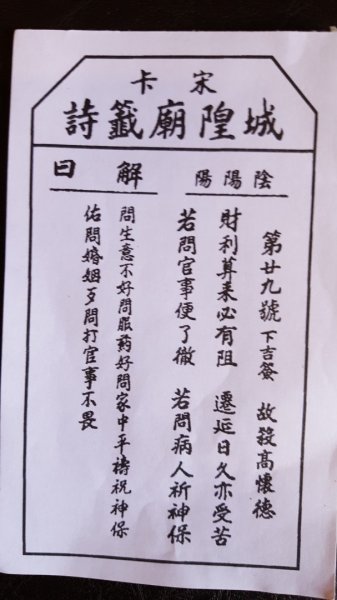 宋卡
城隍廟籤詩
陰陽陽
解曰
第廿九號 下吉簽 故殺高懷德
財利算來必有阻 遷延日久亦受苦
若問官事便了徹 若問病人祈神保
問生意不好問服药好問家中平禱祝神保
佑問婚姻歹問打官事不畏